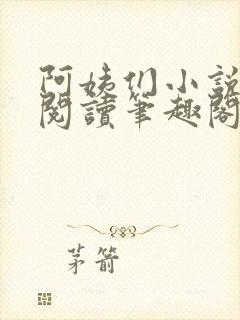 阿姨们小說
閱讀筆趣閣
茅箭